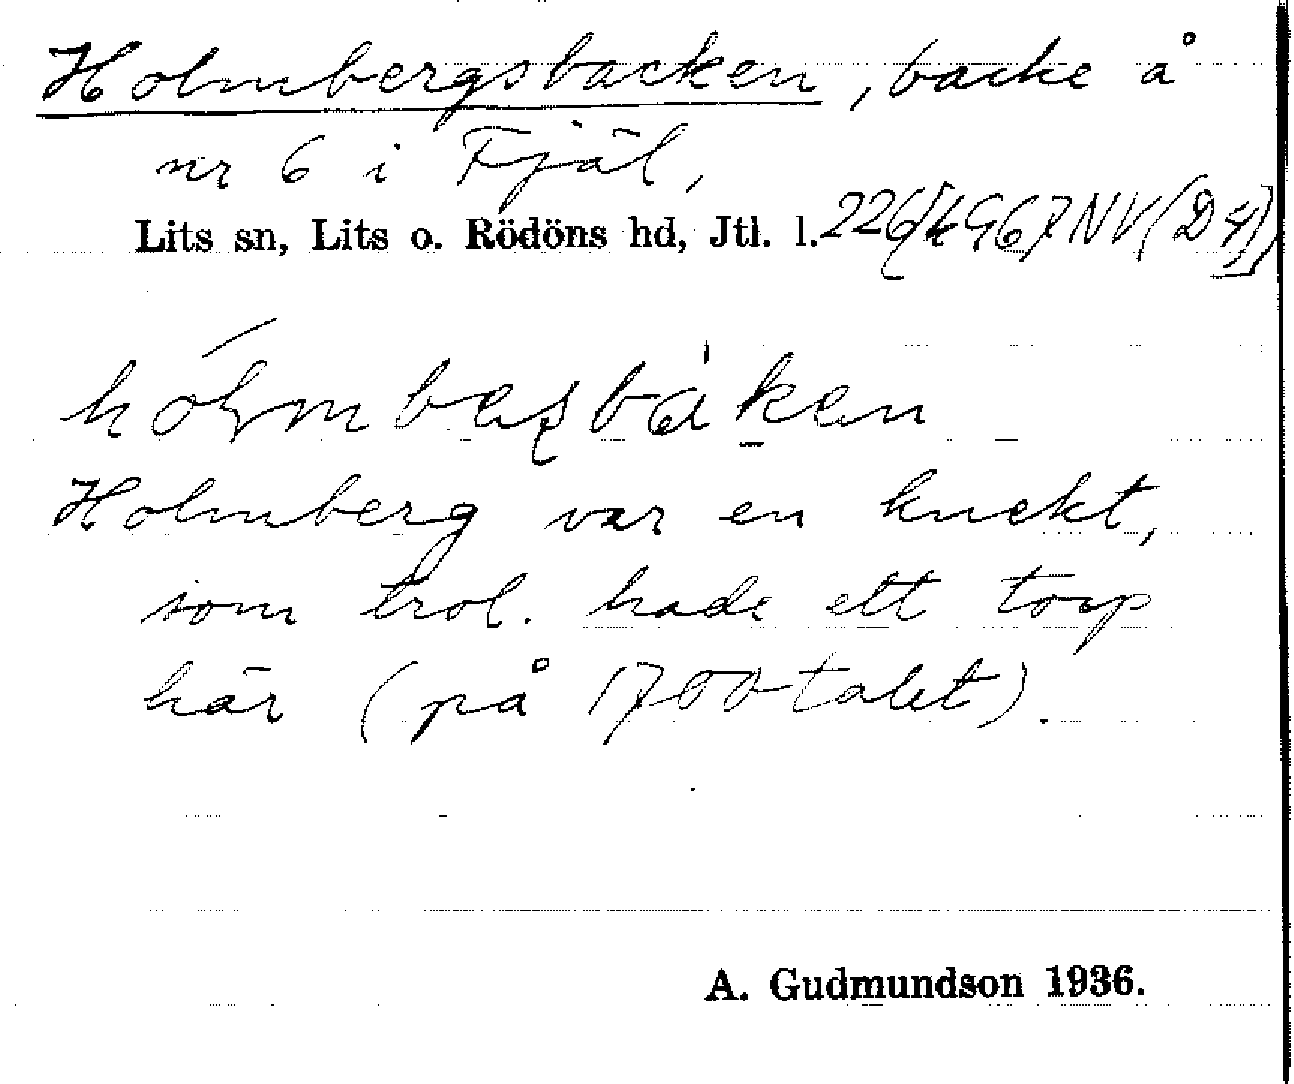 Holmbergsbacken, backe å
nr 6 i Fjäl,
Lits sn, Lits o. Rödöns hd, Jtl. l.
Holmberg var en knekt,
som trol. hade ett torp
här (på 1700-talet).
A. Gudmundson 1936.